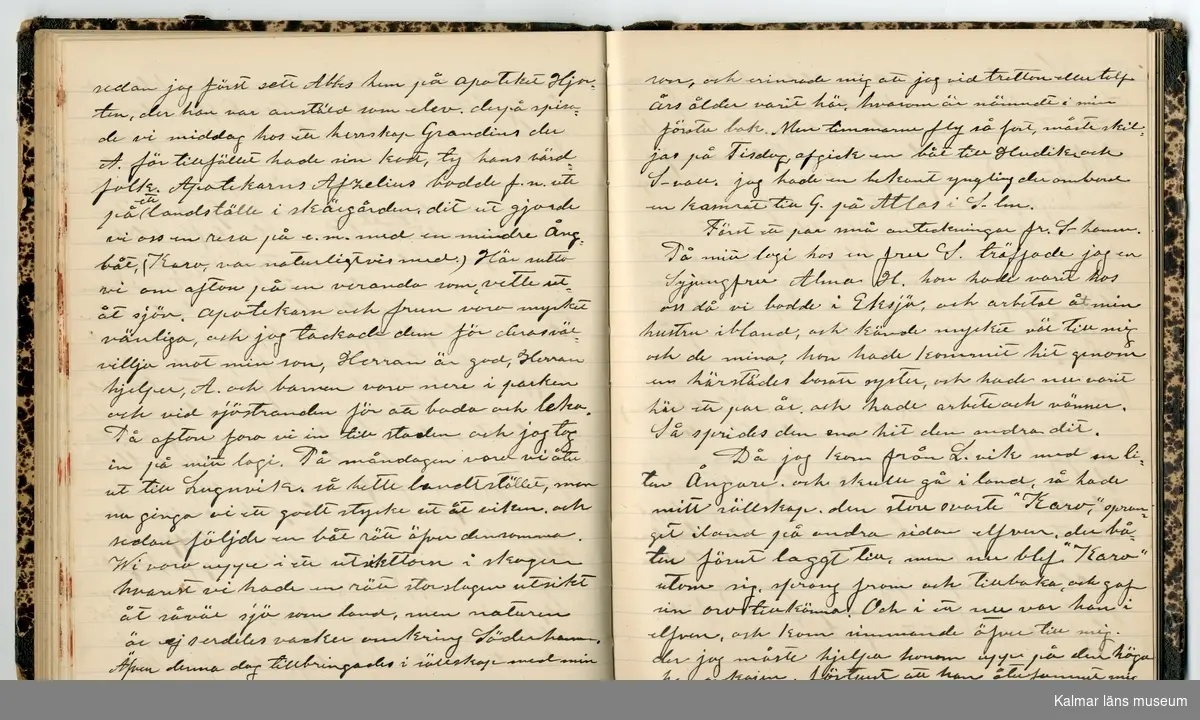 sedan jag först sett Abbes hem på apoteket Hjor-
ten, der han var anstäld som elev. derpå spisa-
de vi middag hos ett herrskap Grandins der
A. för tillfället hade sin kost, ty hans värd
folk. Apotekarns Afzelius bodde f.n. ute
på ett landställe i skärgården, dit ut gjorde
vi oss en resa på e.m. med en mindre Ång-
båt, (Karo, var naturligtvis med.) Här sutto
vi om afton på en veranda som vette ut-
åt sjön. apotekarn och frun voro mycket
vänliga, och jag tackade dem för deras väl-
vilja mot min son, Herran är god, Herran
hjelper, A. och barnen voro nere i parken
och vid sjöstranden för att bada och leka.
På afton foro vi in till staden och jag tog
in på mitt logi. På måndagen voro vi åter
ut till Lugnvik. så hette landtstället, men
nu gingo vi ett godt stycke ut åt viken. och
sedan följde en båt rätt öfver densamma.
Wi voro uppe i ett utsikttorn i skogen
hvarest vi hade en rätt storslagen utsikt
åt såväl sjö som land, men naturen
är ej serdeles vacker omkring Söderhamn.
Äfven denna dag tillbringades i sällskap med min
son, och erinrade mig att jag vid tretton eller tolf
års ålder varit här, hvarom är nämndt i min
första bok. Men timmarne fly så fort, måste skil-
jas på Tisdag, afgick en båt till Hudik. och
S-vall. jag hade en bekant yngling der ombord
en kamrat till G. på Atlas i S-lm.
Först ett par små anteckningar fr. S-hamn.
På mitt logi hos en fru S. träffade jag en
Syjungfru Alma H. hon hade varit hos
oss då vi bodde i Eksjö, och arbetat åt min
hustru ibland, och kände mycket väl till mig
och de mina, hon hade kommit hit genom
en härstädes bosatt syster, och hade nu varit
här ett par år. och hade arbete och vänner.
Så sprides den ena hit den andra dit.
Då jag kom från L.vik med en li-
ten Ångare. och skulle gå i land, så hade
mitt sällskap. den store svarte "Karo," sprun-
git iland på andra sidan elfven, der bå-
ten förut laggt till, men nu blef "Karo"
utom sig, sprang fram och tillbaka, och gaf
sin oro tillkänna. Och i ett nu var han i
elfven, och kom simmande öfver till mig.
der jag måste hjelpa honom uppe på den höga
kajen, förtjust att han återfunnit mig
Kalmar läns museum